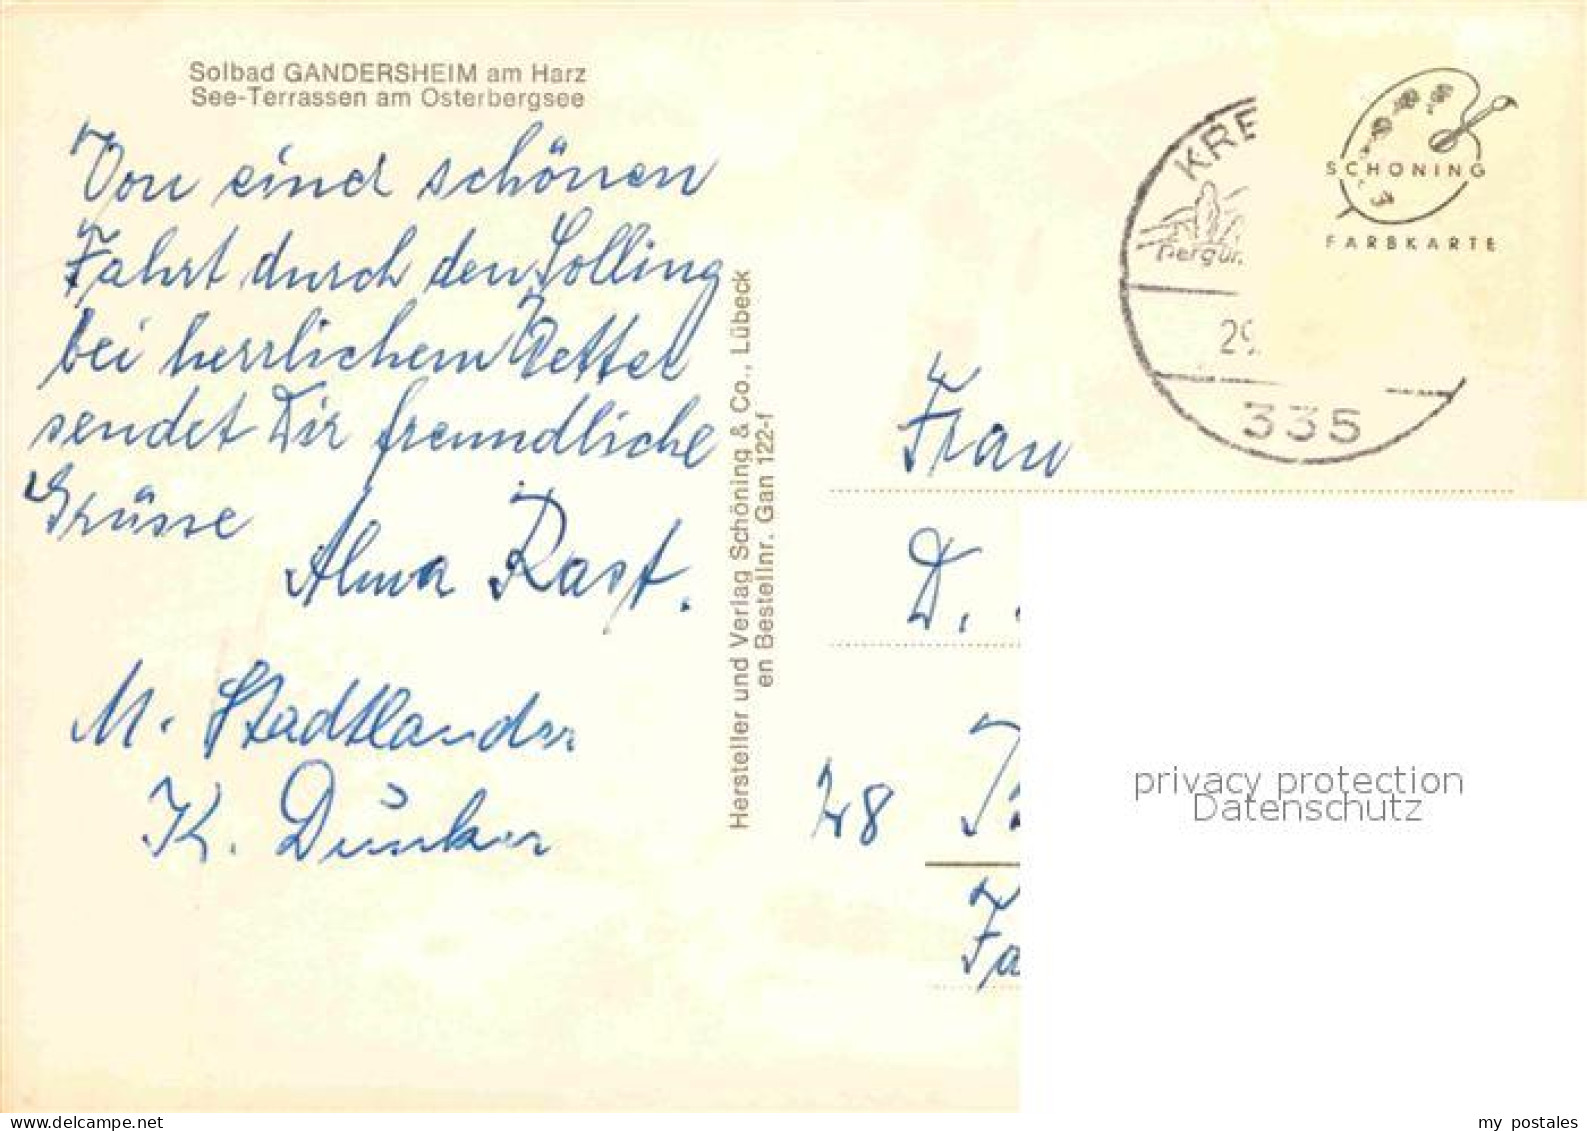 Solbad GANDERSHEIM am Harz
See-Terrassen am Osterbergsee
Von einer schönen
Fahrt durch den Solling
bei herrlichem Wetter
sendet Dir freundliche
Grüsse
Alma Rast.
M. Stadtlander
K. Dünker
Hersteller und Verlag Schöning & Co., Lübeck
en Bestellnr. Gan 122-f
KRE
29.
335
SCHÖNING
FARBKARTE
Frau
D.
28
Fa
privacy protection
Datenschutz
my postales